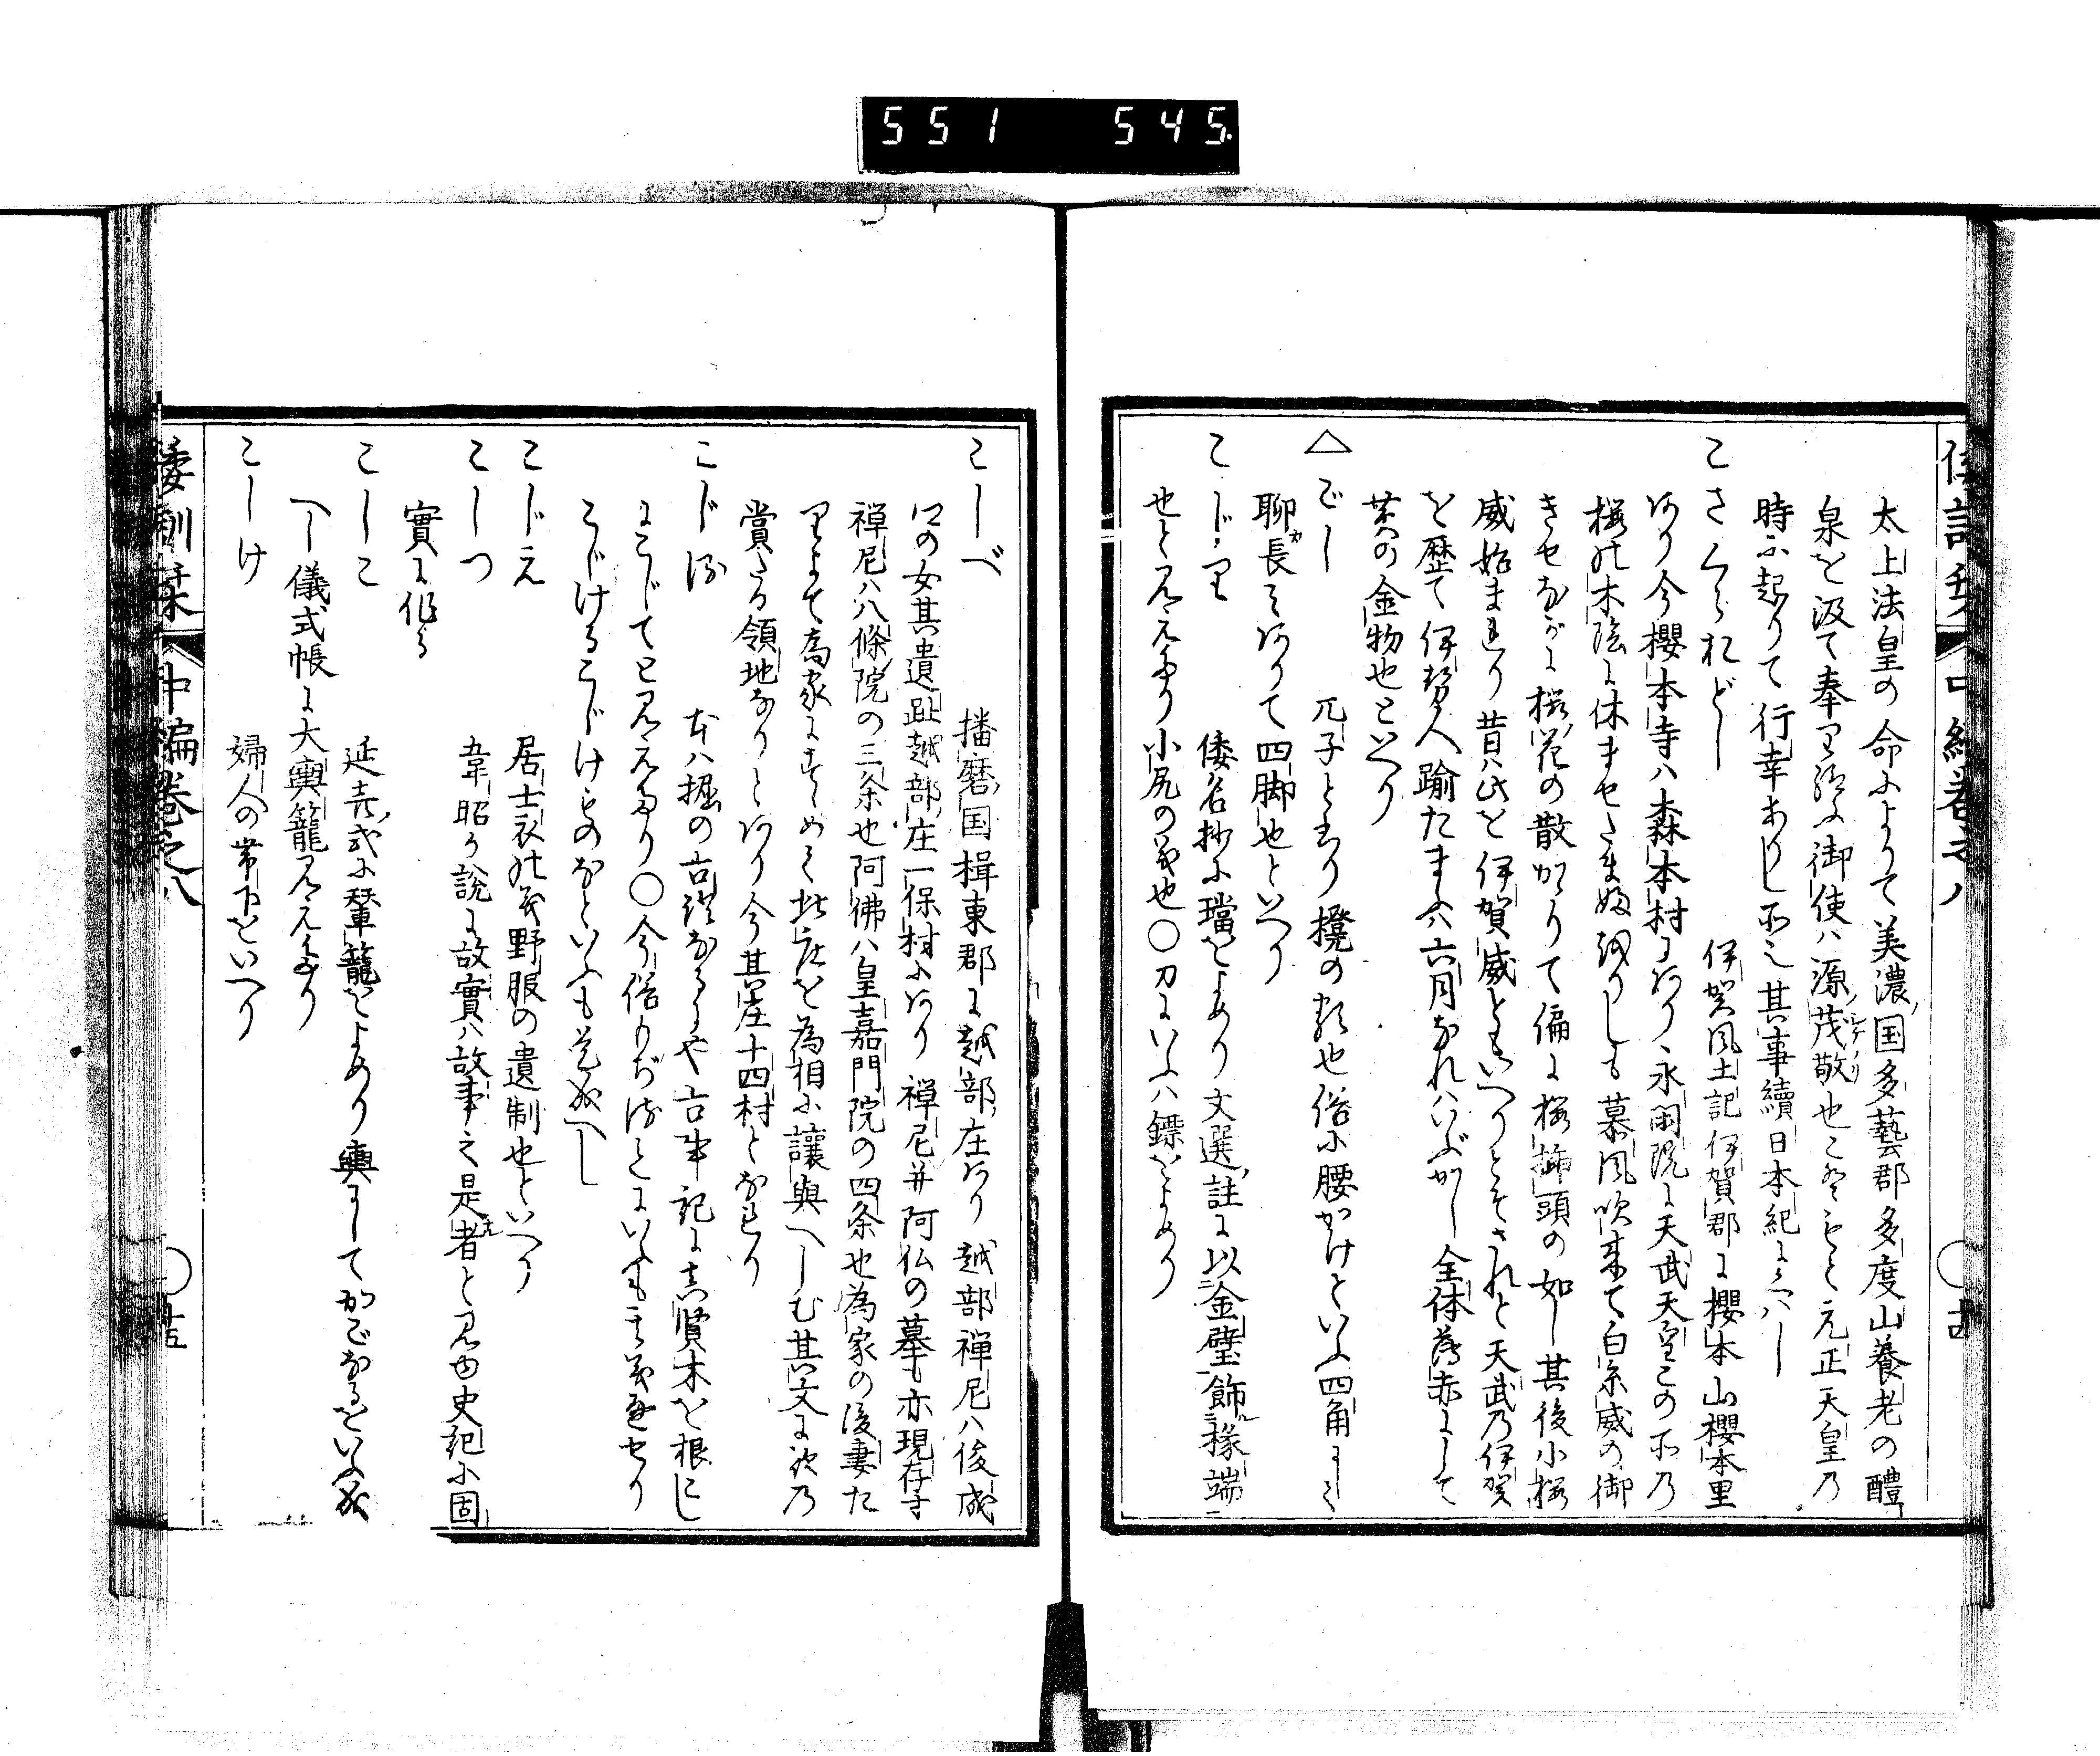 551 545
太上法皇の命によりて美濃国多藝郡多度山養老の醴
泉を汲て奉り給ふ御使ハ源茂敬也こゝもと元正天皇乃
時に起りて行幸ありし所也其事續日本紀に
こさくらおどし 伊賀風土記伊賀郡に櫻本山櫻本里
あり今櫻本寺ハ森本村にあり永閑院に天武天皇この所乃
桜の木陰に休ませたまふ折りしも暮風吹来て白糸威の御
きせながに桜花の散かゝりて偏に桜挿頭の如し其後小桜
威始まれり昔ハ此を伊賀威ともいへりとぞされと天武乃伊賀
を歴て伊勢へ踰たまふハ六月なれハいぶかし全体薄赤にして
黄の金物也といへり
△こじ 兀子とあり櫈の類也俗に腰かけといふ四角にして
聊長くありて四脚也といへり
こじり 倭名抄に璫をよめり文選註に以金璧飾椽端
也と見えたり小尻の義也○刀にいふハ鏢をよめり
倭訓栞 中編巻之八
こしべ 播磨国揖東郡に越部庄あり越部禅尼ハ俊成
卿の女其遺趾越部庄一保村にあり禅尼并阿仏の墓も亦現存す
禅尼ハ八條院の三条也阿佛ハ皇嘉門院の四条也為家の後妻た
りよて為家にすゝめて此庄を為相に讓與へしむ其文に祓乃
賞たる領地なりとあり今其庄十四村となれり
こじる 本ハ掘の古語なるにや古事記に真賢木を根こじ
にこじてと見えたり○今俗もぢるをいふも其義通せり
こじけるこじけものなといふも是成へし
こじえ 居士衣の義野服の遺制也といへり
こしつ 韋昭か説に故實ハ故事之是者と見ゆ史記に固
實に作る
こしこ 延喜式に輦籠をよめり輿にしてかごなるをいふ成
へし儀式帳に大輿籠見えたり
こしけ 婦人の帯下をいへり
倭訓栞 中編巻之八 ○十五